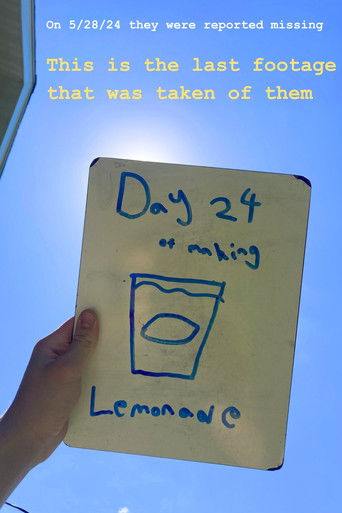 On 5/28/24 they were reported missing
This is the last footage
that was taken of them
Day 24
of making
Lemonade